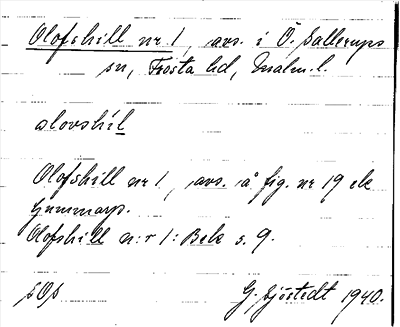 Olofshill nr 1, avs. i Ö. Sallerups
sn, Frosta hd, Malm. l.
olovshil
Olofshill nr 1, avs. å fig. nr 19 ek
Gummarp.
Olofshill n:r 1: Beb s. 9.
G. Sjöstedt 1940.